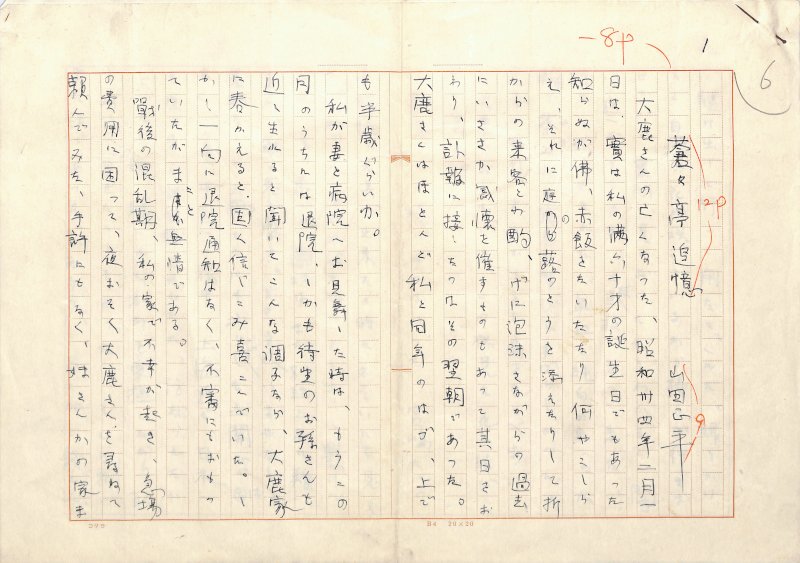 蒼々亭追憶
山田正平
大鹿さんの亡くなった、昭和卅四年二月一
日は、實は私の満六十才の誕生日でもあった
知らぬが佛、赤飯をたいたり 何やこしら
え、それに庭の蕗のとうを添えたりして折
からの来客とわ酌、げに泡沫さながらの過去
にいささか感懐を催すものもあって其日をお
わり、訃報に接したのはその翌朝であった。
大鹿さんはほとんど私と同年のはづ、上で
も半歳ぐらいか。
私が妻と病院へお見舞した時は、もうこの
月のうちには退院、しかも待望のお孫さんも
近く生れると聞いてこんな調子なら、大鹿家
に春かえると、固く信じこみ喜こんでいた。し
かし一向に退院通知はなく、不審にもおもっ
ていたがまことに無情である。
戰後の混乱期、私の家で不幸が起き、急場
の費用に困って、夜おそく大鹿さんを尋ねて
頼んでみた、手許にもなく、妹さんかの家ま
-8p
1
6
12p
9
コクヨ
B4 20×20